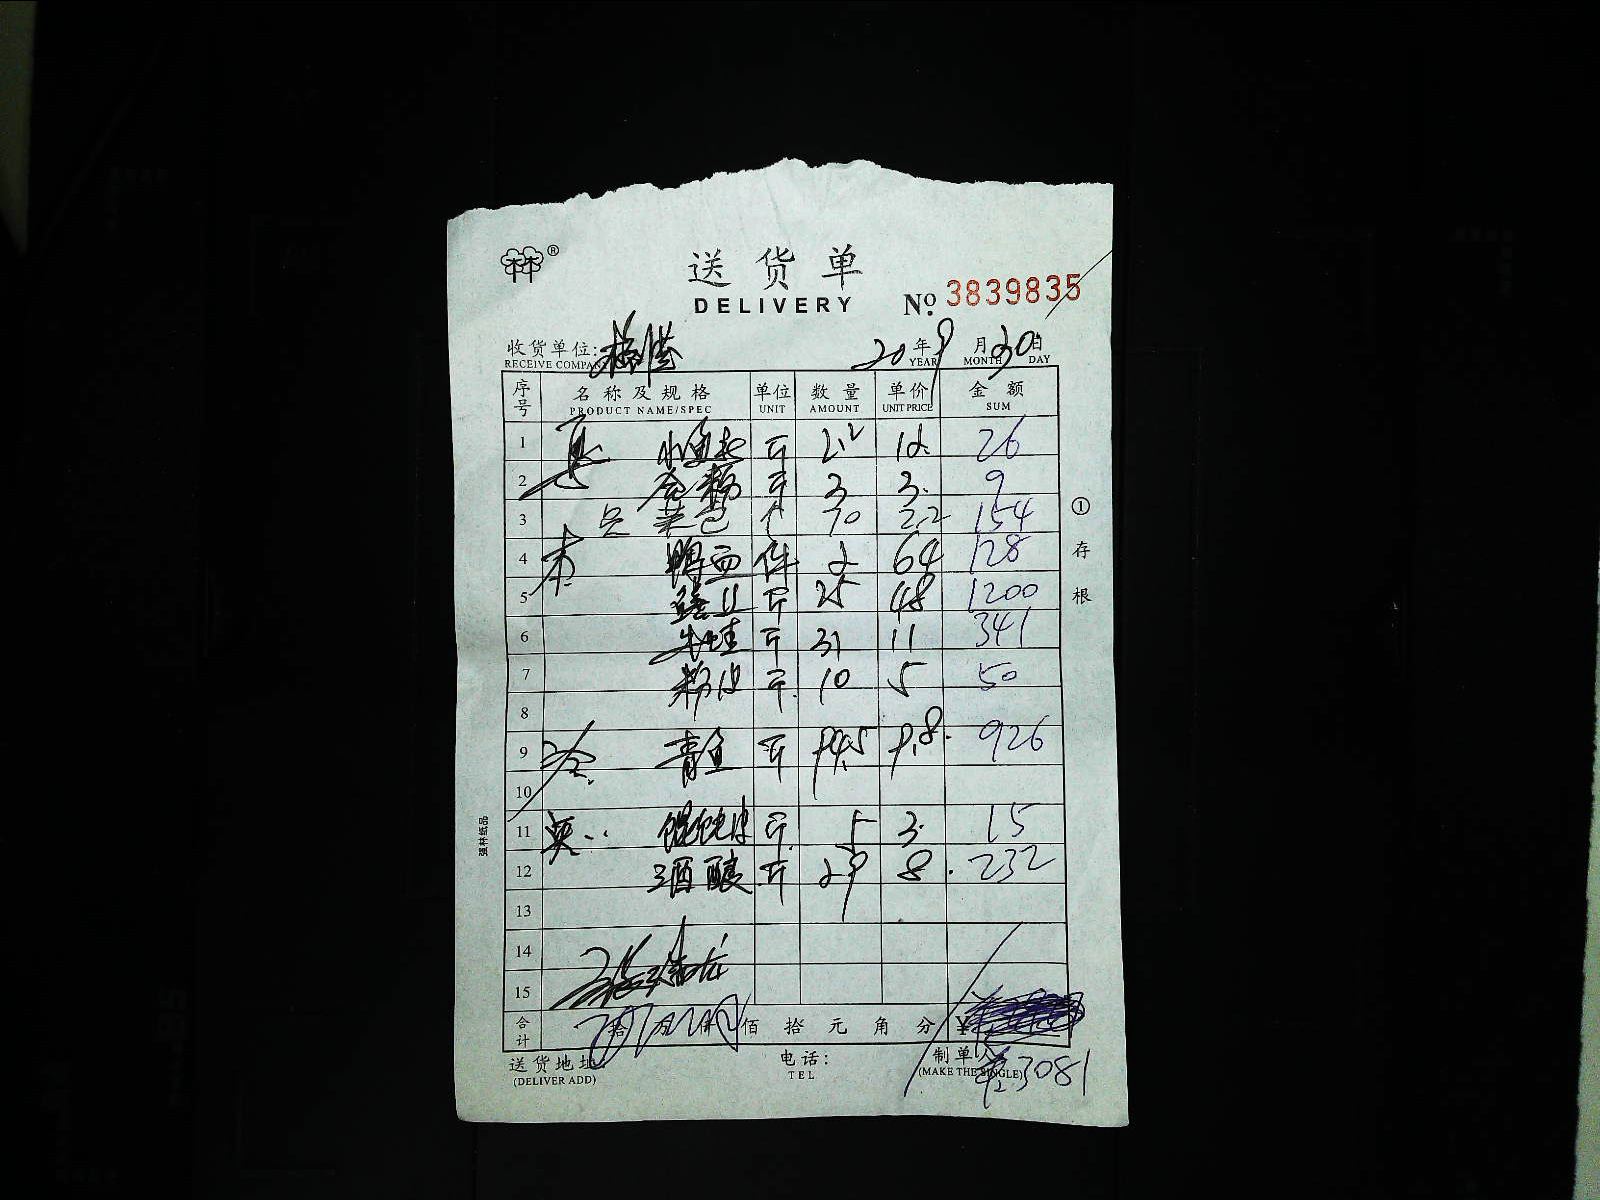 林®
送货单
DELIVERY
№ 3839835
收货单位:
RECEIVE COMPANY
20年9月30日
YEAR MONTH DAY
序号 名称及规格 单位 数量 单价 金额
PRODUCT NAME/SPEC UNIT AMOUNT UNIT PRICE SUM
1 斤 2.2 12. 26
2 斤 3 3. 9
3 菜包 个 70 2.2 154
4 鸭血 件 2 64 128
5 斤 25 48 1200
6 牛蛙 斤 31 11 341
7 粉皮 斤. 10 5 50
8
9 青鱼 斤 94.5 9.8. 926
10
11 馄饨皮 斤. 5 3. 15
12 酒酿 斤 29 8. 232
13
14
15
合计 拾 万 仟 佰 拾 元 角 分 ¥
3081
送货地址:
(DELIVER ADD)
电话:
TEL
制单人
(MAKE THE SINGLE)
①存根
强林纸品